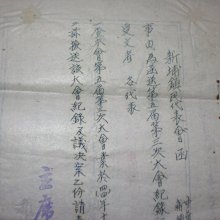 新埔鎮民代表會函
事由為函送第五屆第三次大會紀錄
受文者 各代表
一、本會第五屆第三次大會業於四年十
一、茲檢送該大會紀錄及議決案乙份請
主席